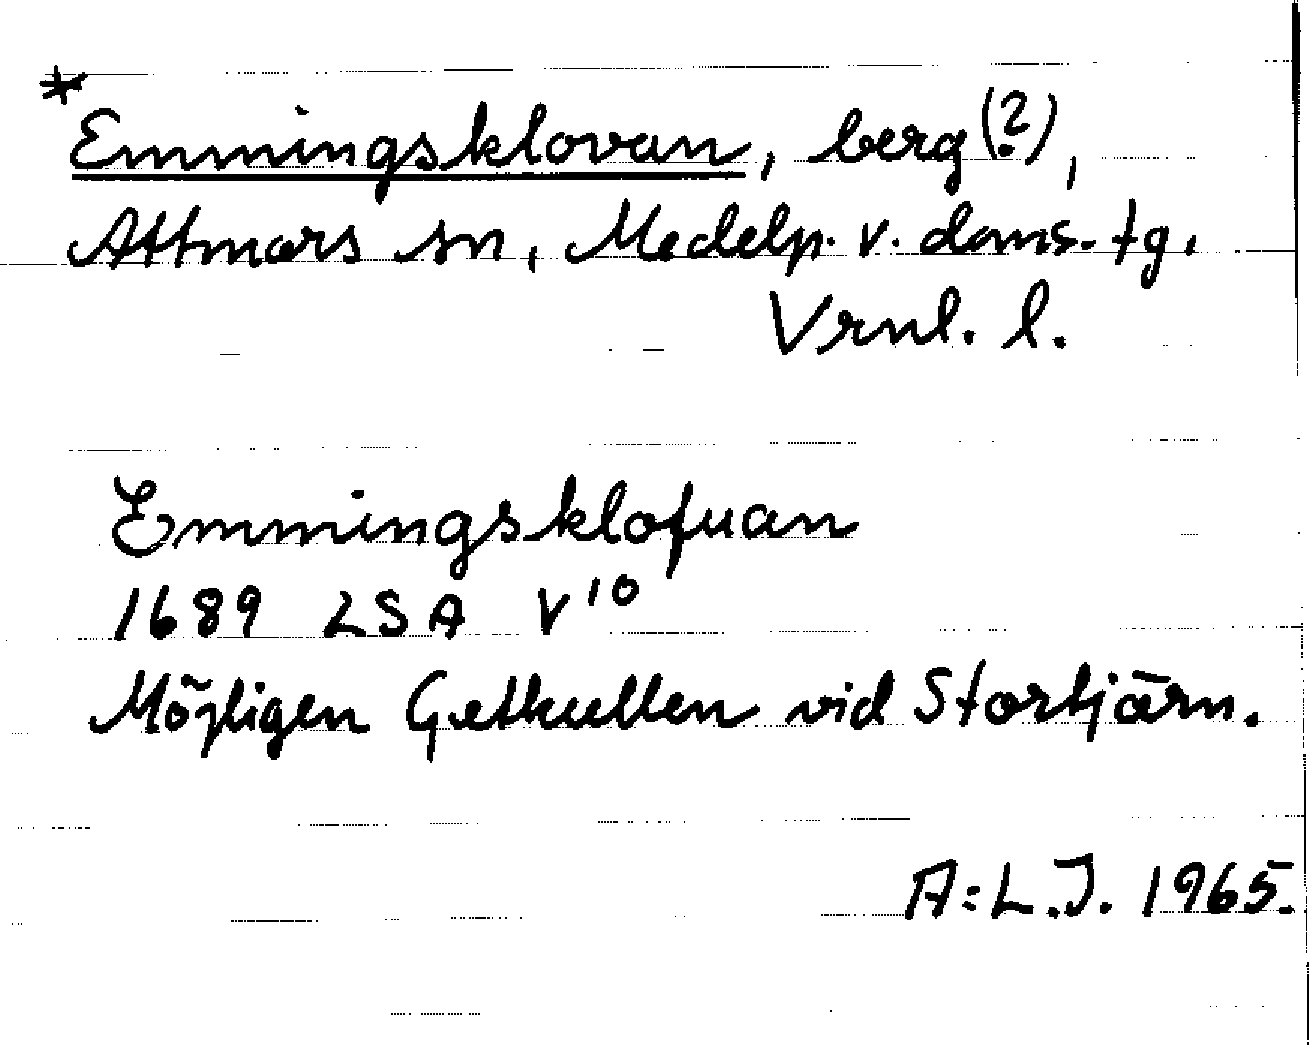 *
Emmingsklovan, berg(?),
Attmars sn, Medelp. v. doms. tg.
Vrnl. l.
Emmingsklofuan
1689 LSA V¹⁰
Möjligen Getkullen vid Stortjärn.
A:L.J. 1965.